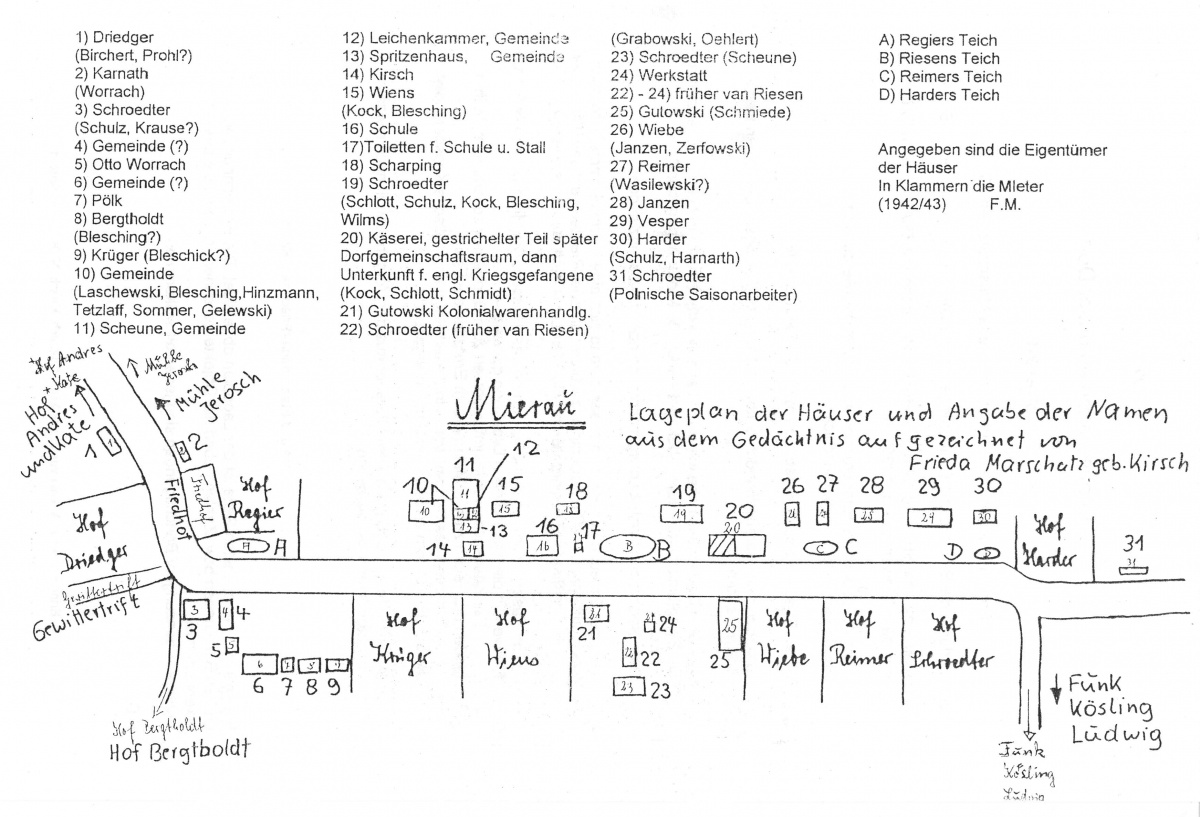 1) Driedger
(Birchert, Prohl?)
2) Karnath
(Worrach)
3) Schroedter
(Schulz, Krause?)
4) Gemeinde (?)
5) Otto Worrach
6) Gemeinde (?)
7) Pölk
8) Bergtholdt
(Blesching?)
9) Krüger (Bleschick?)
10) Gemeinde
(Laschewski, Blesching,Hinzmann,
Tetzlaff, Sommer, Gelewski)
11) Scheune, Gemeinde
12) Leichenkammer, Gemeinde
13) Spritzenhaus, Gemeinde
14) Kirsch
15) Wiens
(Kock, Blesching)
16) Schule
17)Toiletten f. Schule u. Stall
18) Scharping
19) Schroedter
(Schlott, Schulz, Kock, Blesching,
Wilms)
20) Käserei, gestrichelter Teil später
Dorfgemeinschaftsraum, dann
Unterkunft f. engl. Kriegsgefangene
(Kock, Schlott, Schmidt)
21) Gutowski Kolonialwarenhandlg.
22) Schroedter (früher van Riesen)
(Grabowski, Oehlert)
23) Schroedter (Scheune)
24) Werkstatt
22) - 24) früher van Riesen
25) Gutowski (Schmiede)
26) Wiebe
(Janzen, Zerfowski)
27) Reimer
(Wasilewski?)
28) Janzen
29) Vesper
30) Harder
(Schulz, Harnarth)
31 Schroedter
(Polnische Saisonarbeiter)
A) Regiers Teich
B) Riesens Teich
C) Reimers Teich
D) Harders Teich
Angegeben sind die Eigentümer
der Häuser
In Klammern die Mieter
(1942/43) F.M.
Hof Andres
+ Kate
Mühle
Jerosch
Hof
Andres
und Kate
Mühle
Jerosch
Mieraŭ
Lageplan der Häuser und Angabe der Namen
aus dem Gedächtnis aufgezeichnet von
Frieda Marschatz geb. Kirsch
1
2
Friedhof
Friedhof
Hof
Regier
A A
Hof
Driedger
Gewittertrift
Gewittertrift
10 10
11 11
12
13 13
14 14
15 15
16 16
17
18 18
19 19
20 20
B B
26
27
28 28
29 29
30 30
C C
D D
Hof
Harder
31 31
3 3
4 4
5 5
6 6
7 7
8 8
9 9
Hof
Krüger
Hof
Wiens
21 21
22 22
23 23
24
25 25
Hof
Wiebe
Hof
Reimer
Hof
Schroedter
Hof Bergtholdt
Hof Bergtboldt
Fŭnk
Kösling
Lŭdwig
Fŭnk
Kösling
Lŭdwig